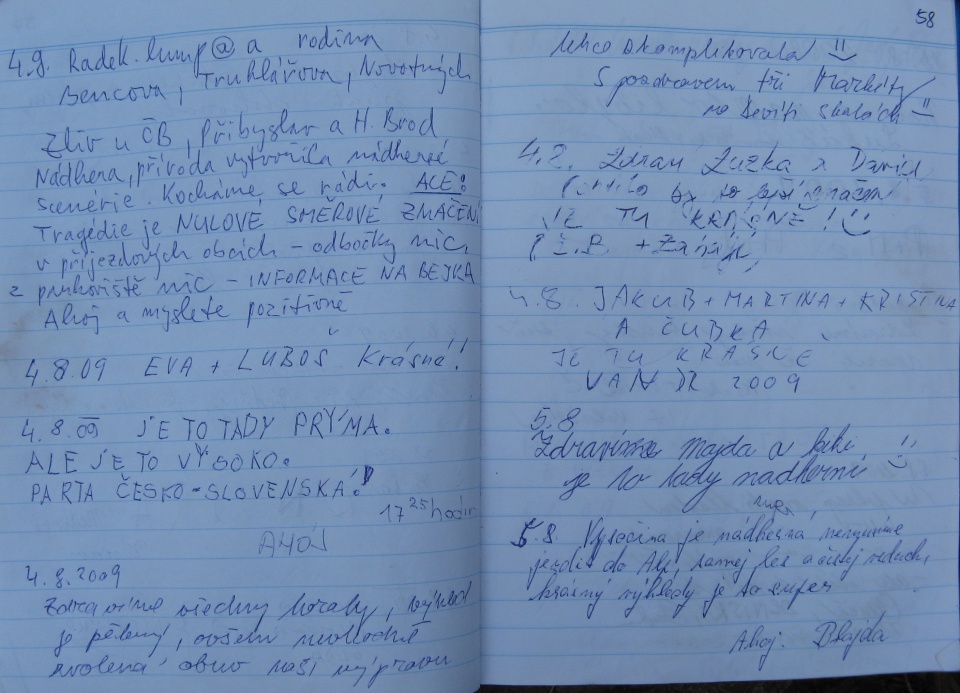 4.8. Radek.lump@ a rodina
Bencova, Truhlářova, Novotných
Zliv u ČB, Přibyslav a H. Brod
Nádhena, příroda vytvořila nádherné
scenérie. Kocháme se rádi. ALE!
Tragédie je NULOVÉ SMĚROVÉ ZNAČENÍ
v příjezdových obcích - odbočky nic,
z parkoviště nic - INFORMACE NA BEJKA
Ahoj a myslete pozitivně
4.8.09 EVA + LUBOŠ Krásné!!
4.8.09 JE TO TADY PRÝMA.
ALE JE TO VYSOKO.
PARTA ČESKO-SLOVENSKÁ!
17 25 hodin
AHOJ
4.8.2009
Zdravíme všechny horaly, výhled
je pěkný, ovšem nevhodně
zvolená obuv naší výpravu
lehce zkomplikovala
S pozdravem tři Markéty
na Devíti skalách
4.8. Zdraví Zuzka a David
JE TU KRÁSNĚ!
4.8. JAKUB + MARTINA + KRISTINA
A ČUBKA
JE TU KRÁSNĚ
VANDR 2009
5.8
Zdravíme majda a
je to tady nadherní
5.8. Vysočina je nádherná, nemusíme
jezdit do Alp, samej les a čistý vzduch,
krásný výhledy je to super
Ahoj. Blajda
58